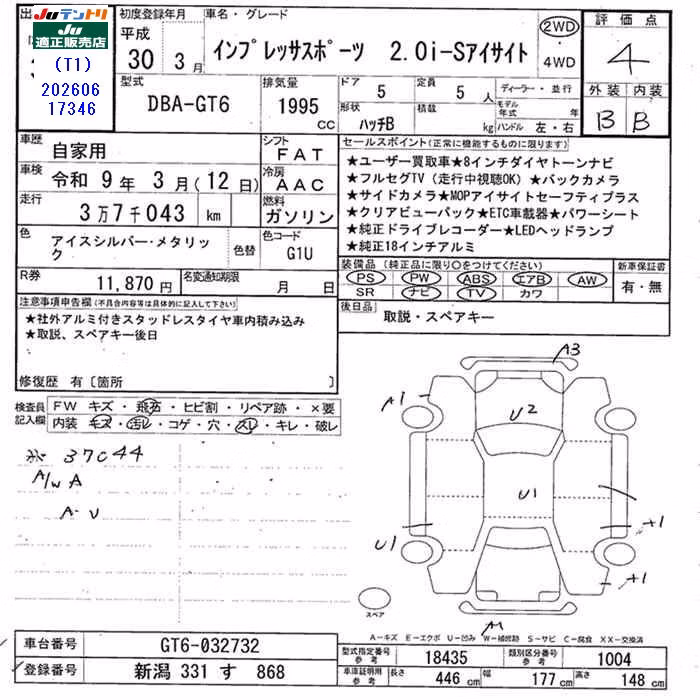 出
Juテントリ
Ju
適正販売店
(T1)
202606
17346
初度登録年月
平成
30年 3月
車名・グレード
インプレッサスポーツ 2.0i-Sアイサイト
2WD
・
4WD
評価点
4
外装 内装
B B
型式
DBA-GT6
排気量
1995
CC
ドア
5
定員
5 人
形状
ハッチB
積載
kg
ディーラー・並行
モデル年式 年
ハンドル 左・右
車歴
自家用
シフト
FAT
車検
令和 9年 3月(12日)
冷房
AAC
走行
3万7千043 km
燃料
ガソリン
色
アイスシルバー・メタリック
色替
色コード
G1U
R券
11,870円
名変通知期限
月 日
セールスポイント(正常に機能するものに限ります)
★ユーザー買取車★8インチダイヤトーンナビ
★フルセグTV(走行中視聴OK)★バックカメラ
★サイドカメラ★MOPアイサイトセーフティプラス
★クリアビューパック★ETC車載器★パワーシート
★純正ドライブレコーダー★LEDヘッドランプ
★純正18インチアルミ
装備品(純正品に限り○をつけてください)
PS PW ABS エアB AW
SR ナビ TV カワ
新車保証書
有・無
後日品
取説・スペアキー
注意事項申告欄(不具合内容等は具体的に記入して下さい)
★社外アルミ付きスタッドレスタイヤ車内積み込み
★取説、スペアキー後日
修復歴 有〔箇所 〕
検査員記入欄
FW キズ・飛石・ヒビ割・リペア跡・×要
内装 キズ・汚レ・コゲ・穴・スレ・キレ・破レ
※ 37044
A/W A
A-U
A3
A1
U2
U1
U1
A1
A1
A
スペア
A-キズ E-エクボ U-凹み W-補修跡 S-サビ C-腐食 XX-交換済
車台番号
GT6-032732
登録番号
新潟 331 す 868
型式指定番号
参考
18435
類別区分番号
参考
1004
車庫証明用
参考
長さ
446 cm
幅
177 cm
高さ
148 cm